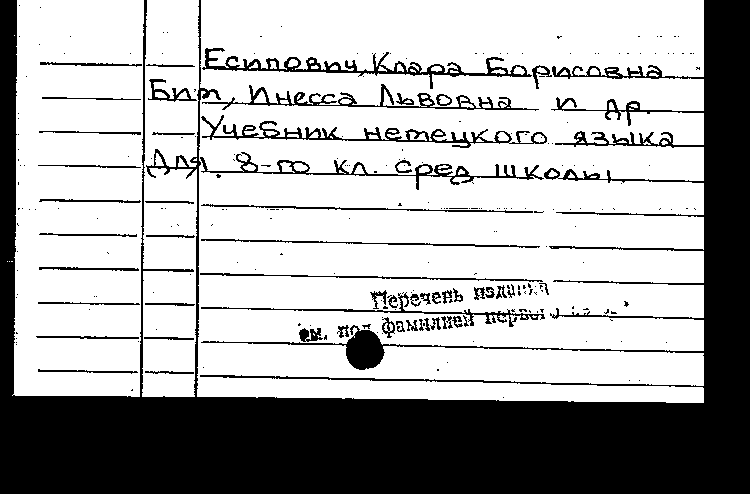 Есипович, Клара Борисовна
Бим, Инесса Львовна и др.
Учебник немецкого языка
для 8-го кл. сред школы.
Перечень издания
см. под фамилией первого